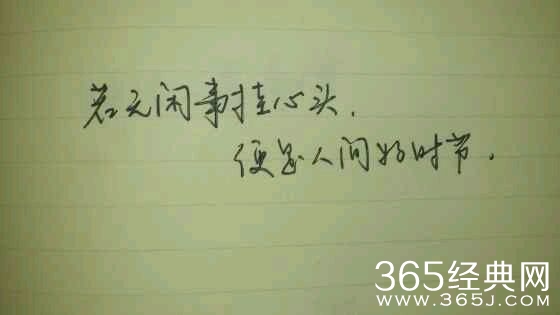 若无闲事挂心头，
便是人间好时节。
365经典网
www.365J.com